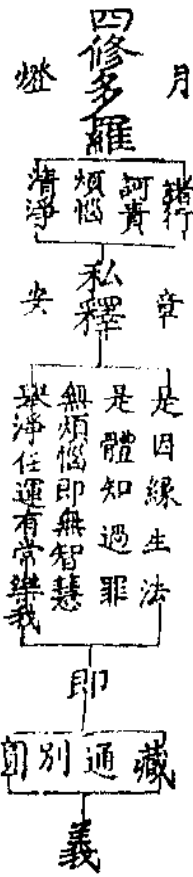 四修多羅
月
燈
諸行
訶責
煩惱
清淨
私釋
章
安
是因緣生法
是體知過罪
無煩惱即無智慧
淨任運有常樂我
即
藏
通
別
圓
義